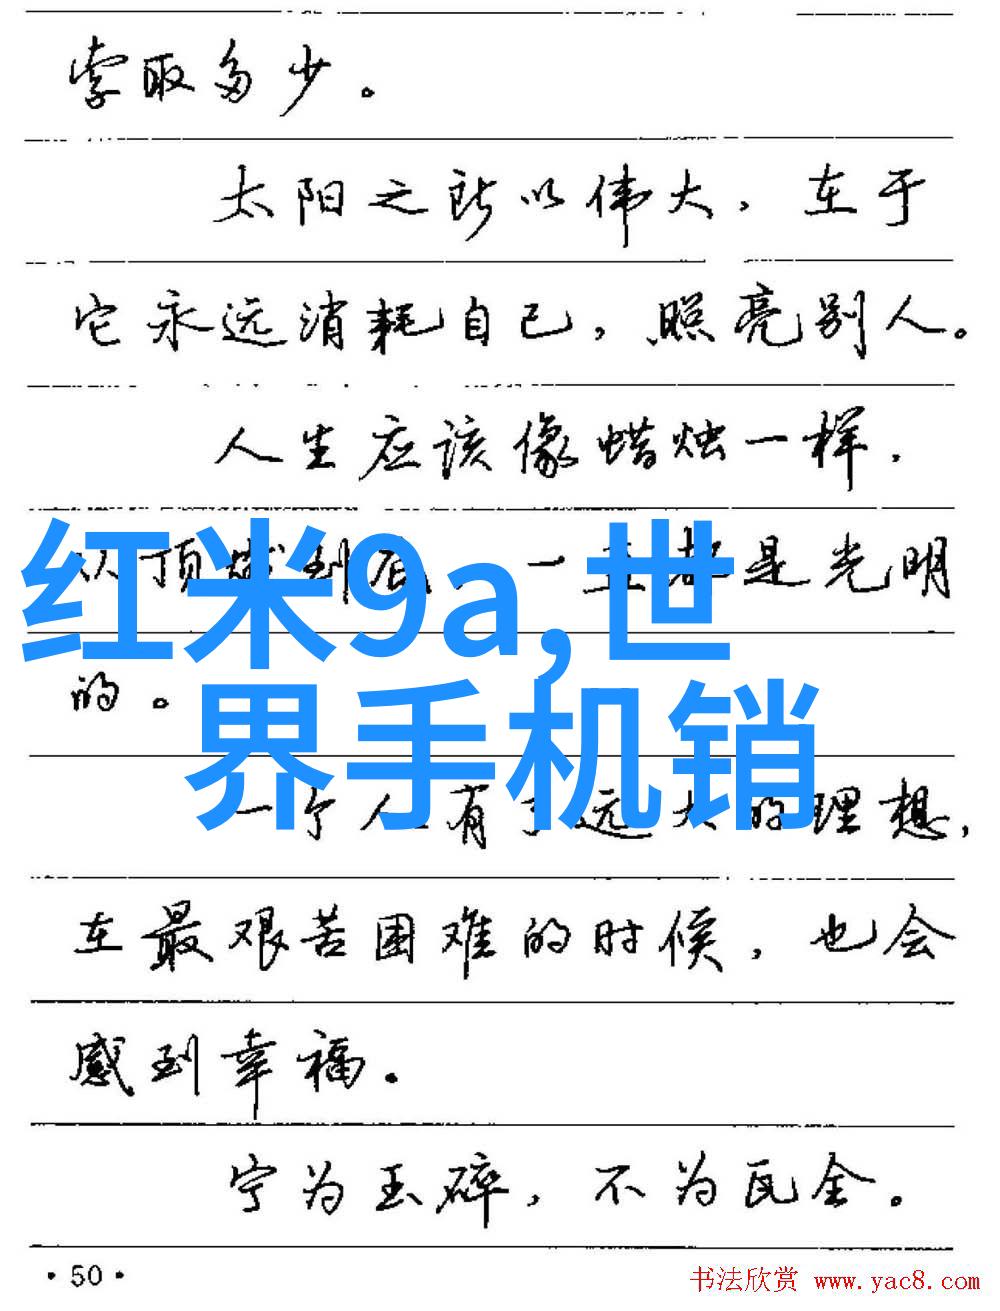 索取多少。
太阳之所以伟大，在于
它永远消耗自己，照亮别人。
人生应该像蜡烛一样，
从顶燃到底，一直都是光明
红米9a,世
的。
界手机销
一个人有了远大的理想，
在最艰苦困难的时候，也会
感到幸福。
宁为玉碎，不为瓦全。
·50·
书法欣赏 www.yac8.com